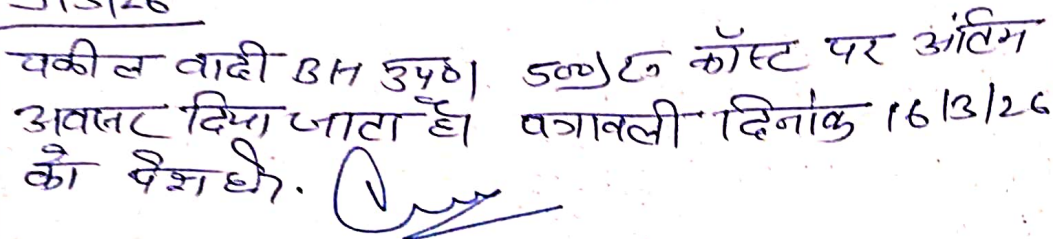 वकील वादी BH उप0। 500/ रु कॉस्ट पर अंतिम
अवसर दिया जाता है। पत्रावली दिनांक 16/3/26
को पेश हो.